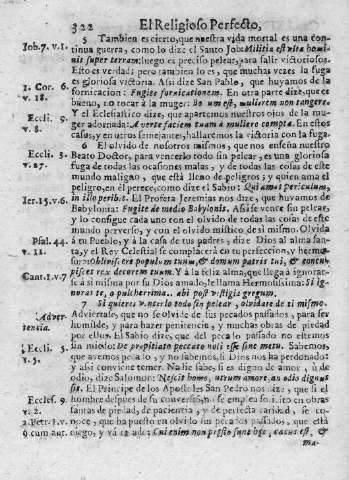 322 El Religioso Perfecto,
5 Tambien es cierto, que nuestra vida mortal es una con
Iob.7. v.1. tinua guerra, como lo dize el Santo Job: Militia est vita homi
nis super terram: luego es preciso pelear, para salir victoriosos.
Esto es verdad; pero tambien lo es, que muchas vezes la fuga
es gloriosa victoria. Assi dize San Pablo, que huyamos de la
1. Cor. 6. fornicacion: Fugite fornicationem. En otra parte dize, que es
v. 18. bueno, no tocar à la muger: Bonum est, mulierem non tangere.
Eccli. 9. Y el Eclesiastico dize, que apartemos nuestros ojos de la mu-
v. 8. ger adornada: Averte faciem tuam à muliere compta. En estos
casos, y en otros semejantes, hallaremos la victoria con la fuga.
6 El olvido de nosotros mismos, que nos enseña nuestro
Eccli. 3. Beato Doctor, para vencerlo todo sin pelear, es una gloriosa
v. 27. fuga de todas las ocasiones malas, y de todas las cosas de este
mundo maligno, que està lleno de peligros; y quien ama el
peligro, en èl perece, como dize el Sabio: Qui amat periculum,
Ier.15.v.6. in illo peribit. El Profeta Jeremias nos dize, que huyamos de
Babylonia: Fugite de medio Babylonis. Assi se vence sin pelear,
y lo consigue cada uno con el olvido de todas las cosas de este
mundo perverso, y con el olvido mistico de si mismo. Olvida
Psal. 44. à tu Pueblo, y à la casa de tus padres, dize Dios al alma san-
v. 11. ta, y el Rey Celestial se complacerà en tu perfeccion, y hermo-
sura: Obliviscere populum tuum, & domum patris tui, & concu-
Cant.1.v.7 piscet rex decorem tuum. Y à la feliz alma, que llega à ignorar-
se à si misma por su Dios amado, le llama Hermosissima: Si ig-
noras te, o pulcherrima. abi post vestigia gregum.
Si quiere vencerlo todo sin pelear, olvidese de si mismo.
Adver- Adviertase, que no se olvide de sus pecados passados, para ser
tencia. humilde, y para hazer penitencia, y muchas obras de piedad
por ellos. El Sabio dize, que del pecado passado no estemos
Eccli. 5. sin miedo: De propitiato peccato noli esse sine metu. Sabemos
v. 5. que avemos pecado, y no sabemos, si Dios nos ha perdonado:
y assi conviene temer. Nadie sabe, si es digno de amor, ù de
odio, dize Salomon: Nescit homo, utrum amore, an odio dignus
Eccles. 9. sit. El Principe de los Apostoles San Pedro nos dize, que si el
v. 2. hombre despues de su conversion, no se emplea solicito en obras
santas de piedad, de paciencia, y de perfecta caridad, se co-
2.Petr.1.v. noce, que ha puesto en olvido sus pecados passados, que està
9. cum ant. ciego, y và à tiento: Cui enim non præsto sunt hæc, cæcus est, &
ma-